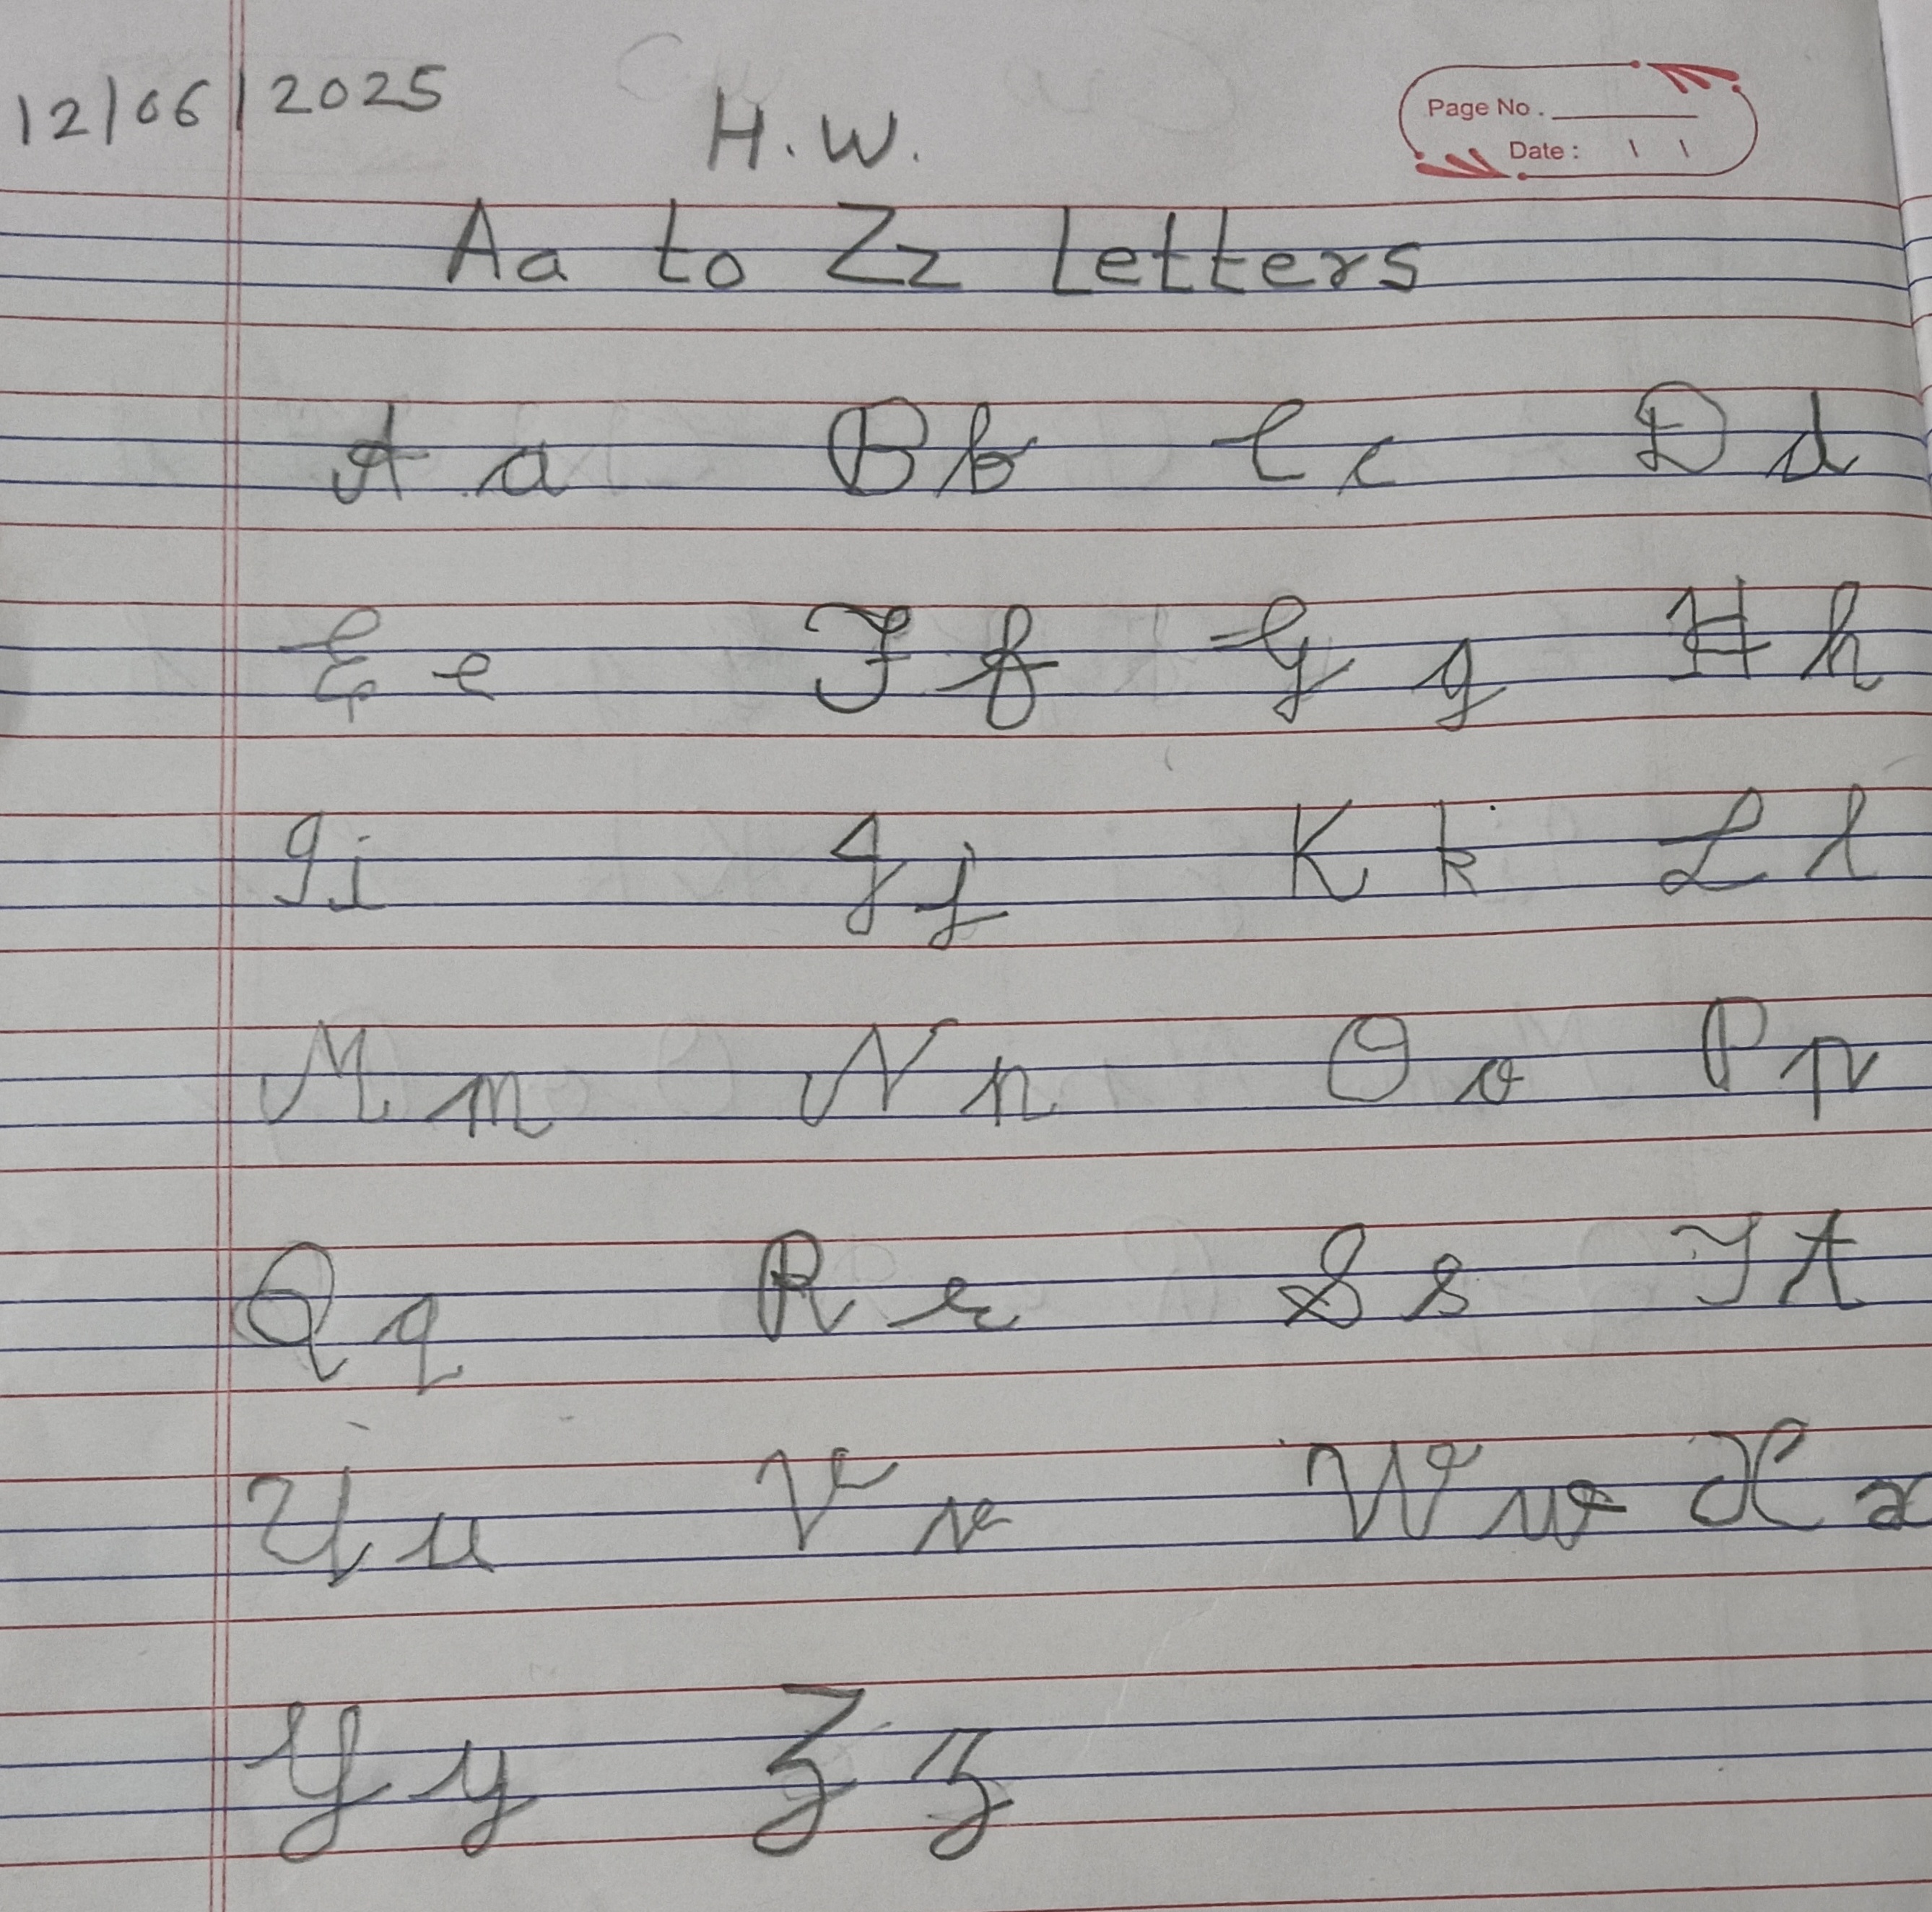 12/06/2025
H.W.
Page No.
Date : \ \
Aa to Zz Letters
A a B b C c D d
E e F f G g H h
I i J j K k L l
M m N n O o P p
Q q R r S s T t
U u V v W w X x
Y y Z z